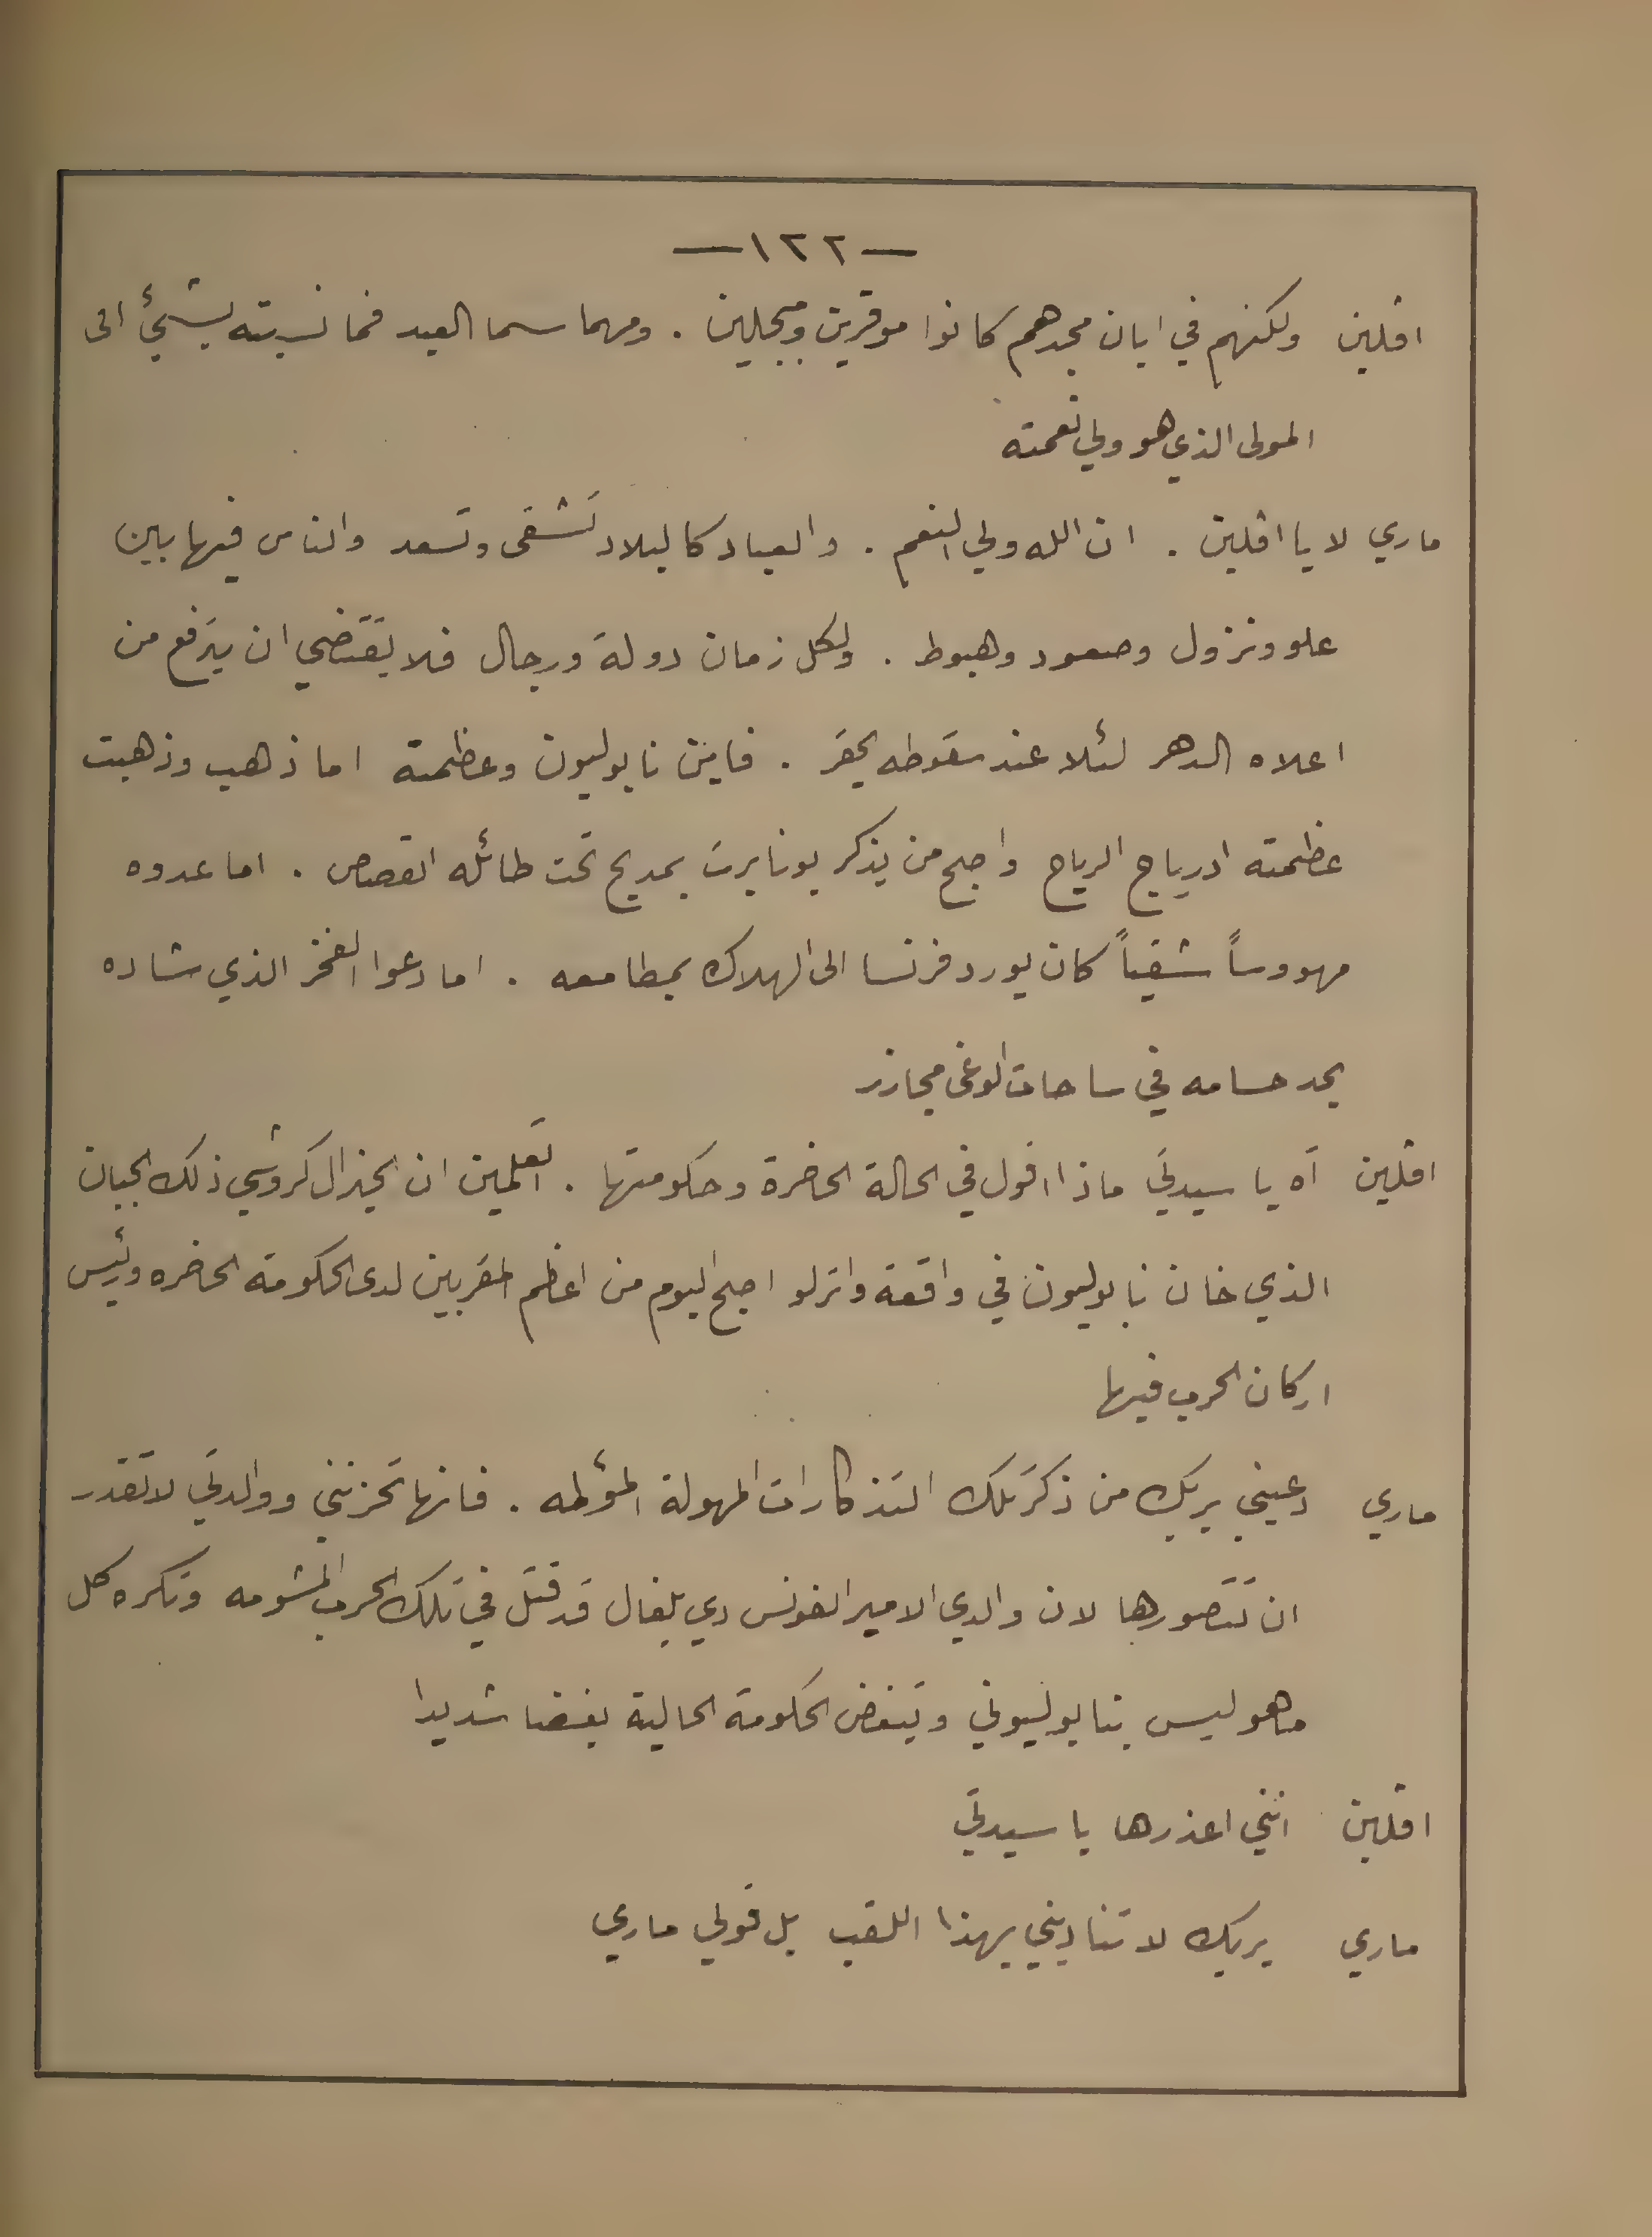 —١٢٢—
افلين ولكنهم في ابان مجدهم كانوا موقرين ومبجلين . ومهما سما العبد فما نسبته بشيئ الى
المولى الذي هو ولي نعمته
ماري لا يا افلين . ان الله ولي النعم . والعباد كالبلاد تشقى وتسعد والناس فيها بين
علو ونزول وصعود وهبوط . ولكل زمان دولة ورجال فلا يقتضي ان يترفع من
اعلاه الدهر لئلا عند سقوطه يحقر . فاين نابوليون وعظمته اما ذهب وذهبت
عظمته ادرياج الرياح واصبح من يذكر بونابرت بمديح تحت طائله القصاص . اما عدوه
مهووساً شقياً كان يورد فرنسا الى الهلاك بمطامعه . اما دعوا الفخر الذي شاده
بحد حسامه في ساحات الوغى مجازر
افلين آه يا سيدتي ماذا اقول في الحالة الحاضرة وحكومتها . اتعلمين ان الجنرال كروشي ذلك الجبان
الذي خان نابوليون في واقعة واترلو اصبح اليوم من اعظم المقربين لدى الحكومة الحاضره ورئيس
اركان الحرب فيها
ماري دعيني بربك من ذكر تلك التذكارات المهولة المؤلمه . فانها تحزنني ووالدتي لا تقدر
ان تتصورها لان والدي الامير الفونس دي بلفال قد قتل في تلك الحرب المشومه وتكره كل
ما هو ليس بنابوليوني وتبغض الحكومة الحالية بغضا شديدا
افلين انني اعذرها يا سيدتي
ماري بربك لا تناديني بهذا اللقب بل قولي ماري